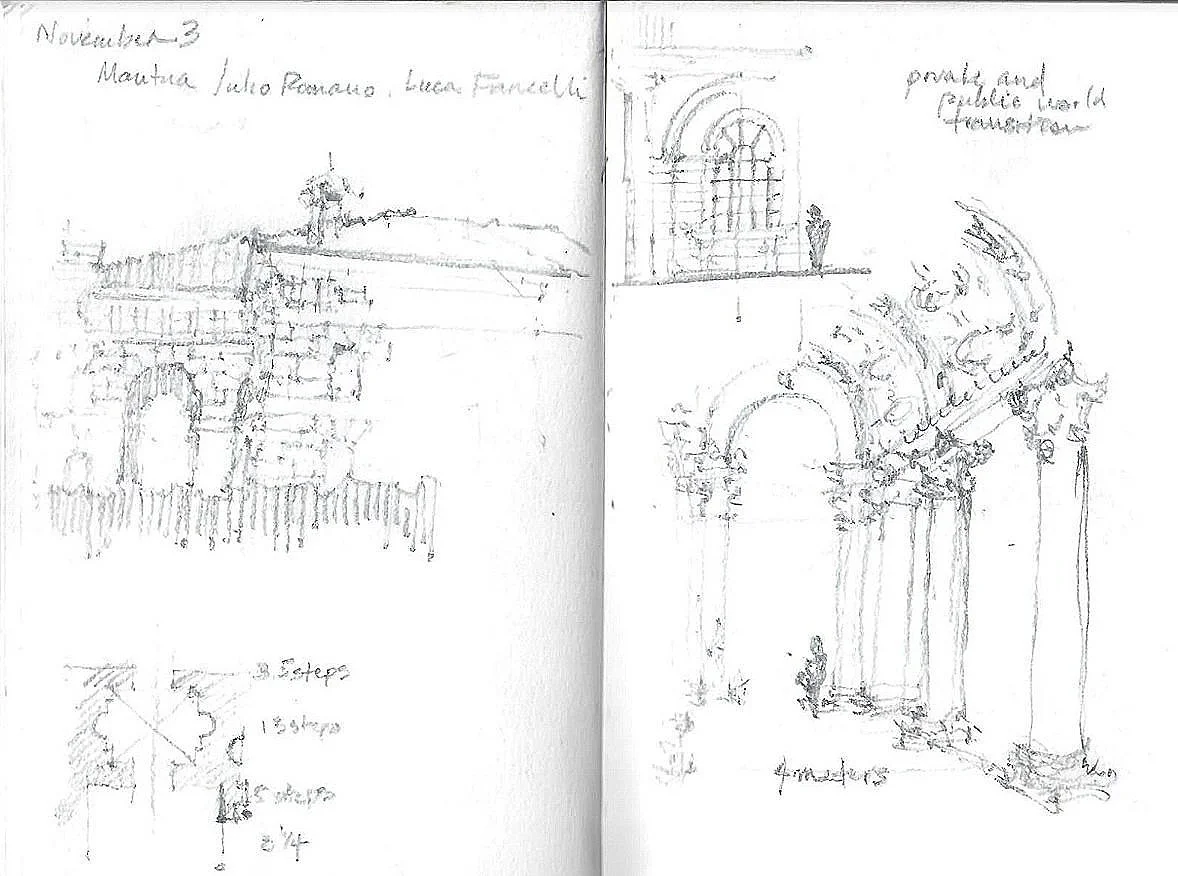 November 3
Mantua Julio Romano. Luca Fancelli
private and
public world
transition
3.5 steps
13 steps
5 steps
3 1/4
4 meters